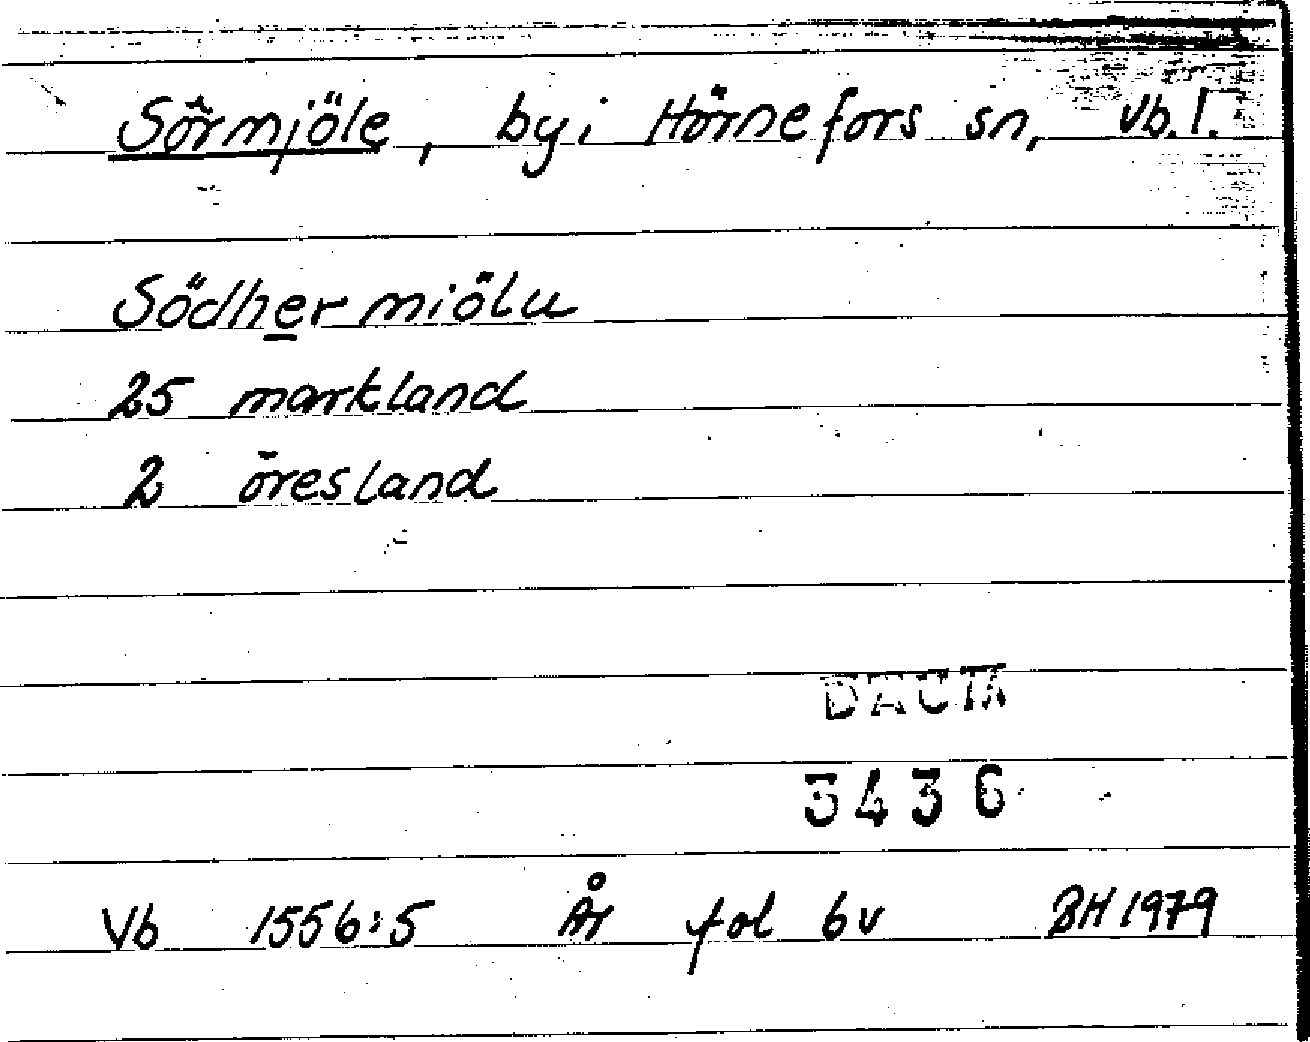 Sörmjöle, by i Hörnefors sn, Vb. l.
Södher miölu
25 markland
2 öresland
DACTA
3436
Vb 1556:5 År fol 6v BH 1979